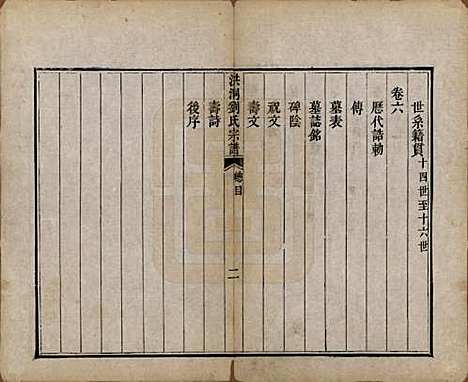 世系籍貫十四世至十六世
卷六
歷代誥勅
傳
墓表
墓誌銘
碑陰
祝文
壽文
洪洞劉氏宗譜 總目 二
壽詩
後序